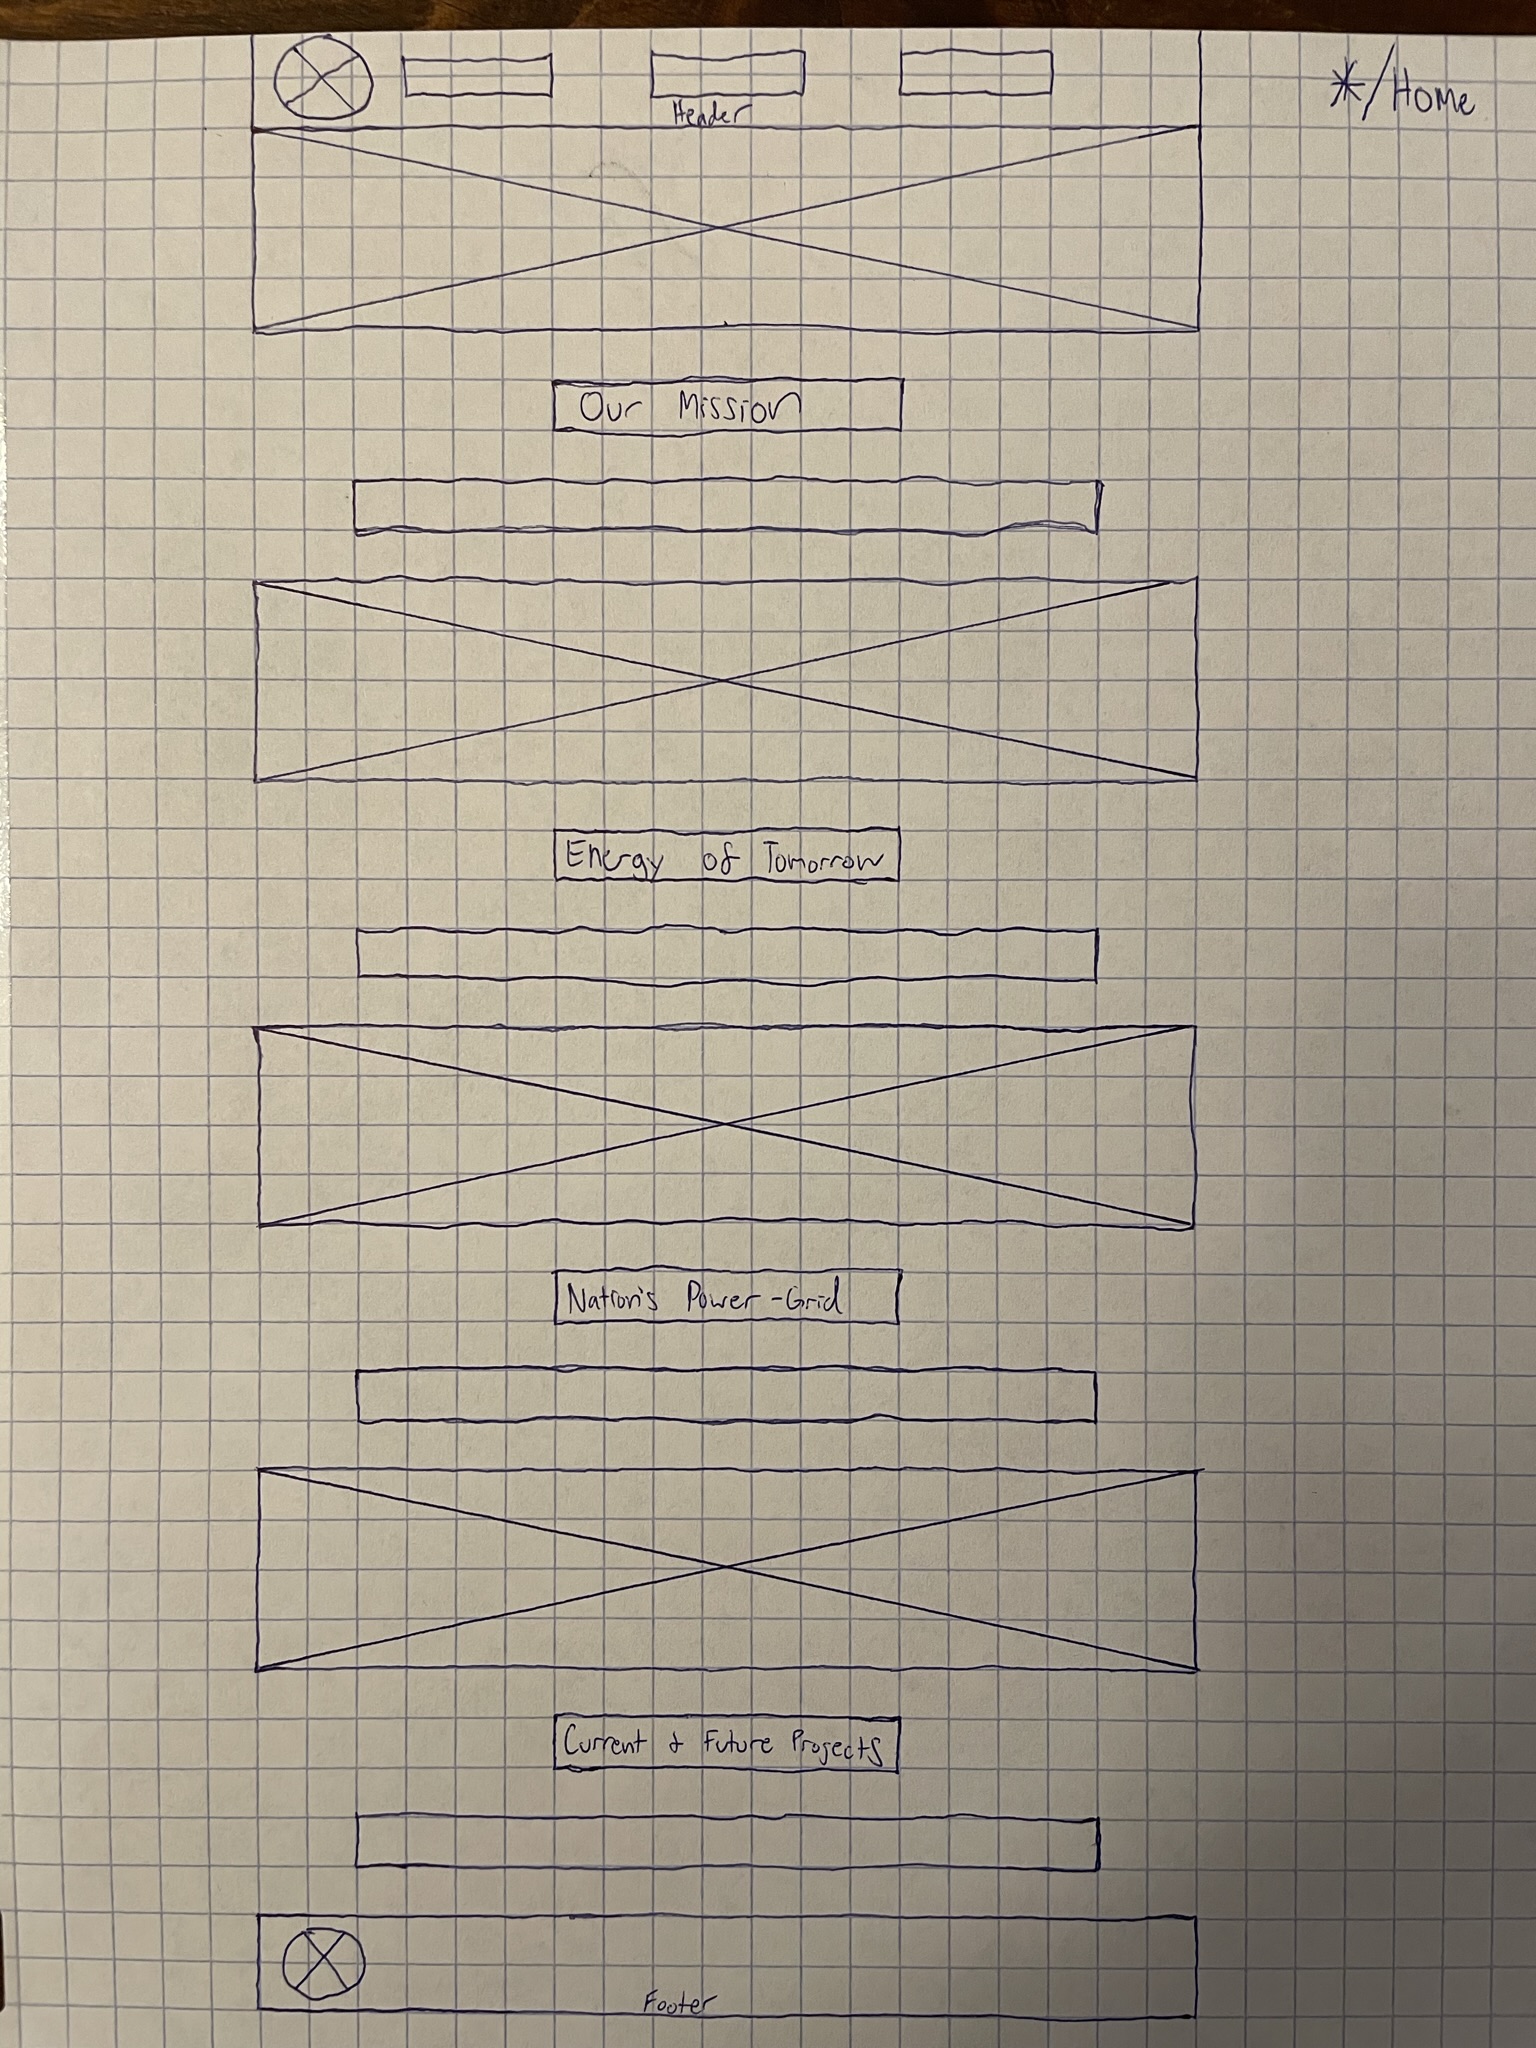 */Home
Header
Our Mission
Energy of Tomorrow
Nation's Power-Grid
Current & Future Projects
Footer